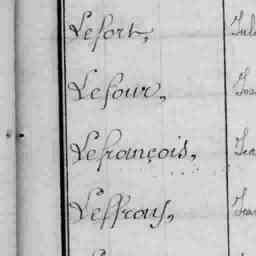 Lefort,
Lefour,
Lefrançois,
Leffray,